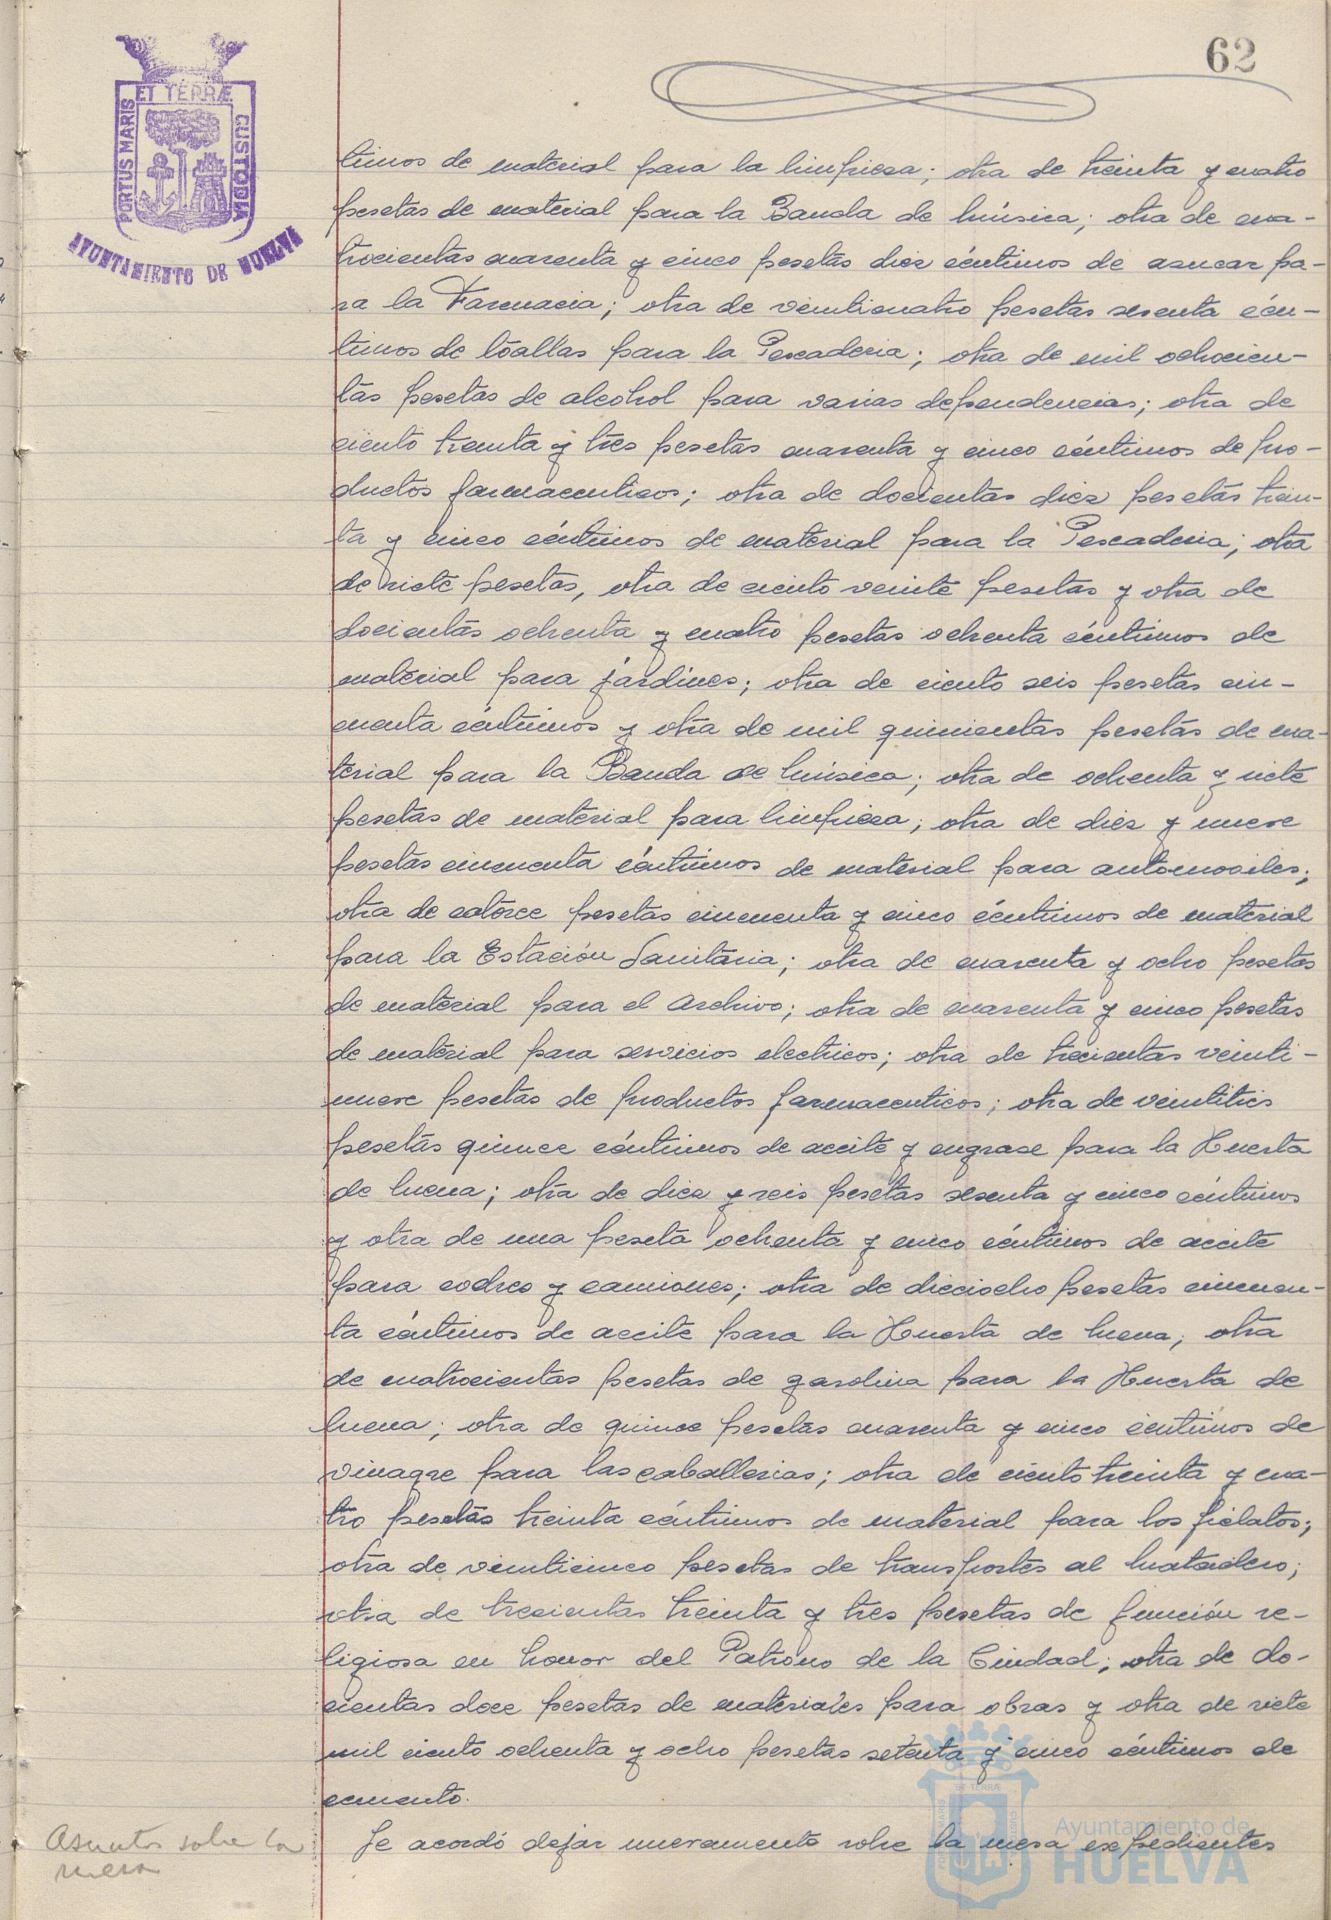 62
ET TERRÆ
PORTUS MARIS
CUSTODIA
AYUNTAMIENTO DE HUELVA
timos de material para la limpieza; otra de treinta y cuatro
pesetas de material para la Banda de música; otra de cua-
trocientas cuarenta y cinco pesetas diez céntimos de azucar pa-
ra la Farmacia; otra de veinticuatro pesetas sesenta cén-
timos de toallas para la Pescaderia; otra de mil ochocien-
tas pesetas de alcohol para varias dependencias; otra de
ciento treinta y tres pesetas cuarenta y cinco céntimos de pro-
ductos farmaceuticos; otra de docientas diez pesetas trein-
ta y cinco céntimos de material para la Pescaderia; otra
de siete pesetas, otra de ciento veinte pesetas y otra de
docientas ochenta y cuatro pesetas ochenta céntimos de
material para jardines; otra de ciento seis pesetas cin-
cuenta céntimos y otra de mil quinientas pesetas de ma-
terial para la Banda de música; otra de ochenta y siete
pesetas de material para limpieza; otra de diez y nueve
pesetas cincuenta céntimos de material para automoviles;
otra de catorce pesetas cincuenta y cinco céntimos de material
para la Estación Sanitaria; otra de cuarenta y ocho pesetas
de material para el Archivo; otra de cuarenta y cinco pesetas
de material para servicios electricos; otra de trecientas veinti-
nueve pesetas de productos farmaceuticos; otra de veintitres
pesetas quince céntimos de aceite y engrase para la Huerta
de mena; otra de diez y seis pesetas sesenta y cinco céntimos
y otra de una peseta ochenta y cinco céntimos de aceite
para coches y camiones; otra de dieciocho pesetas cincuen-
ta céntimos de aceite para la Huerta de mena; otra
de cuatrocientas pesetas de gasolina para la Huerta de
mena; otra de quince pesetas cuarenta y cinco céntimos de
vinagre para las caballerias; otra de ciento treinta y cua-
tro pesetas treinta céntimos de material para los fielatos;
otra de veinticinco pesetas de transportes al matadero;
otra de trecientas treinta y tres pesetas de función re-
ligiosa en honor del Patrono de la Ciudad; otra de do-
cientas doce pesetas de materiales para obras y otra de siete
mil ciento ochenta y ocho pesetas setenta y cinco céntimos de
cemento.
Asuntos sobre la
mesa
Se acordó dejar nuevamente sobre la mesa expedientes
Ayuntamiento de
HUELVA